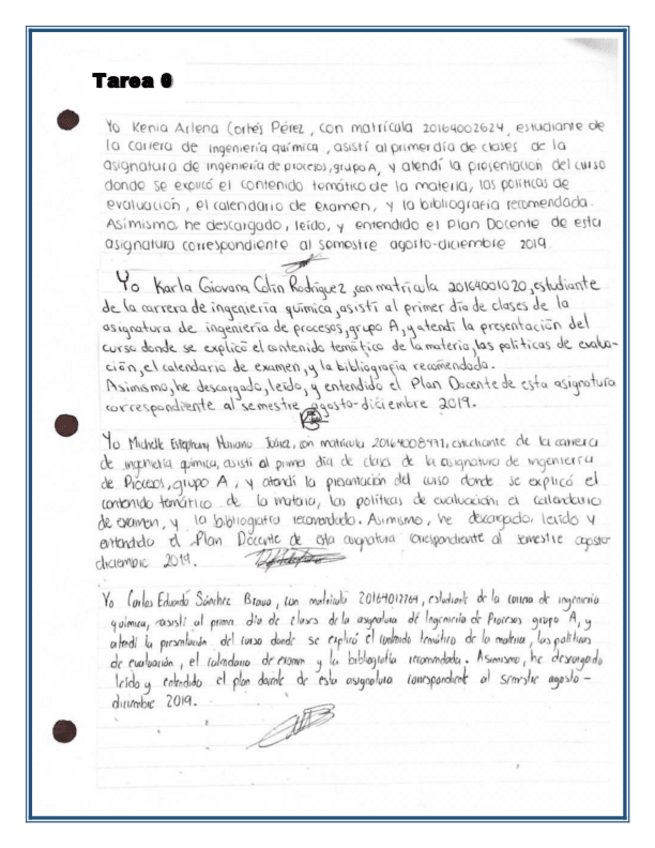 Tarea 0
Yo Kenia Arlena Cortés Pérez, con matrícula 20164002624, estudiante de
la carrera de ingeniería química, asistí al primer día de clases de la
asignatura de ingeniería de procesos, grupo A, y atendí la presentación del curso
donde se explicó el contenido temático de la materia, las políticas de
evaluación, el calendario de examen, y la bibliografía recomendada.
Asimismo, he descargado, leído, y entendido el Plan Docente de esta
asignatura correspondiente al semestre agosto-diciembre 2019.
Yo Karla Giovana Colín Rodríguez, con matrícula 20164001020, estudiante
de la carrera de ingeniería química, asistí al primer día de clases de la
asignatura de ingeniería de procesos, grupo A, y atendí la presentación del
curso donde se explicó el contenido temático de la materia, las políticas de evalua-
ción, el calendario de examen, y la bibliografía recomendada.
Asimismo, he descargado, leído, y entendido el Plan Docente de esta asignatura
correspondiente al semestre agosto-diciembre 2019.
Yo Michelle Estephany, con matrícula, estudiante de la carrera
de ingeniería química, asistí al primer día de clases de la asignatura de ingeniería
de Procesos, grupo A, y atendí la presentación del curso donde se explicó el
contenido temático de la materia, las políticas de evaluación, el calendario
de examen, y la bibliografía recomendada. Asimismo, he descargado, leído y
entendido el Plan Docente de esta asignatura correspondiente al semestre agosto-
diciembre 2019.
Yo Carlos Eduardo Sánchez Bravo, con matrícula 20164012764, estudiante de la carrera de ingeniería
química, asistí al primer día de clases de la asignatura de Ingeniería de Procesos grupo A, y
atendí la presentación del curso donde se explicó el contenido temático de la materia, las políticas
de evaluación, el calendario de examen y la bibliografía recomendada. Asimismo, he descargado
leído y entendido el plan docente de esta asignatura correspondiente al semestre agosto-
diciembre 2019.